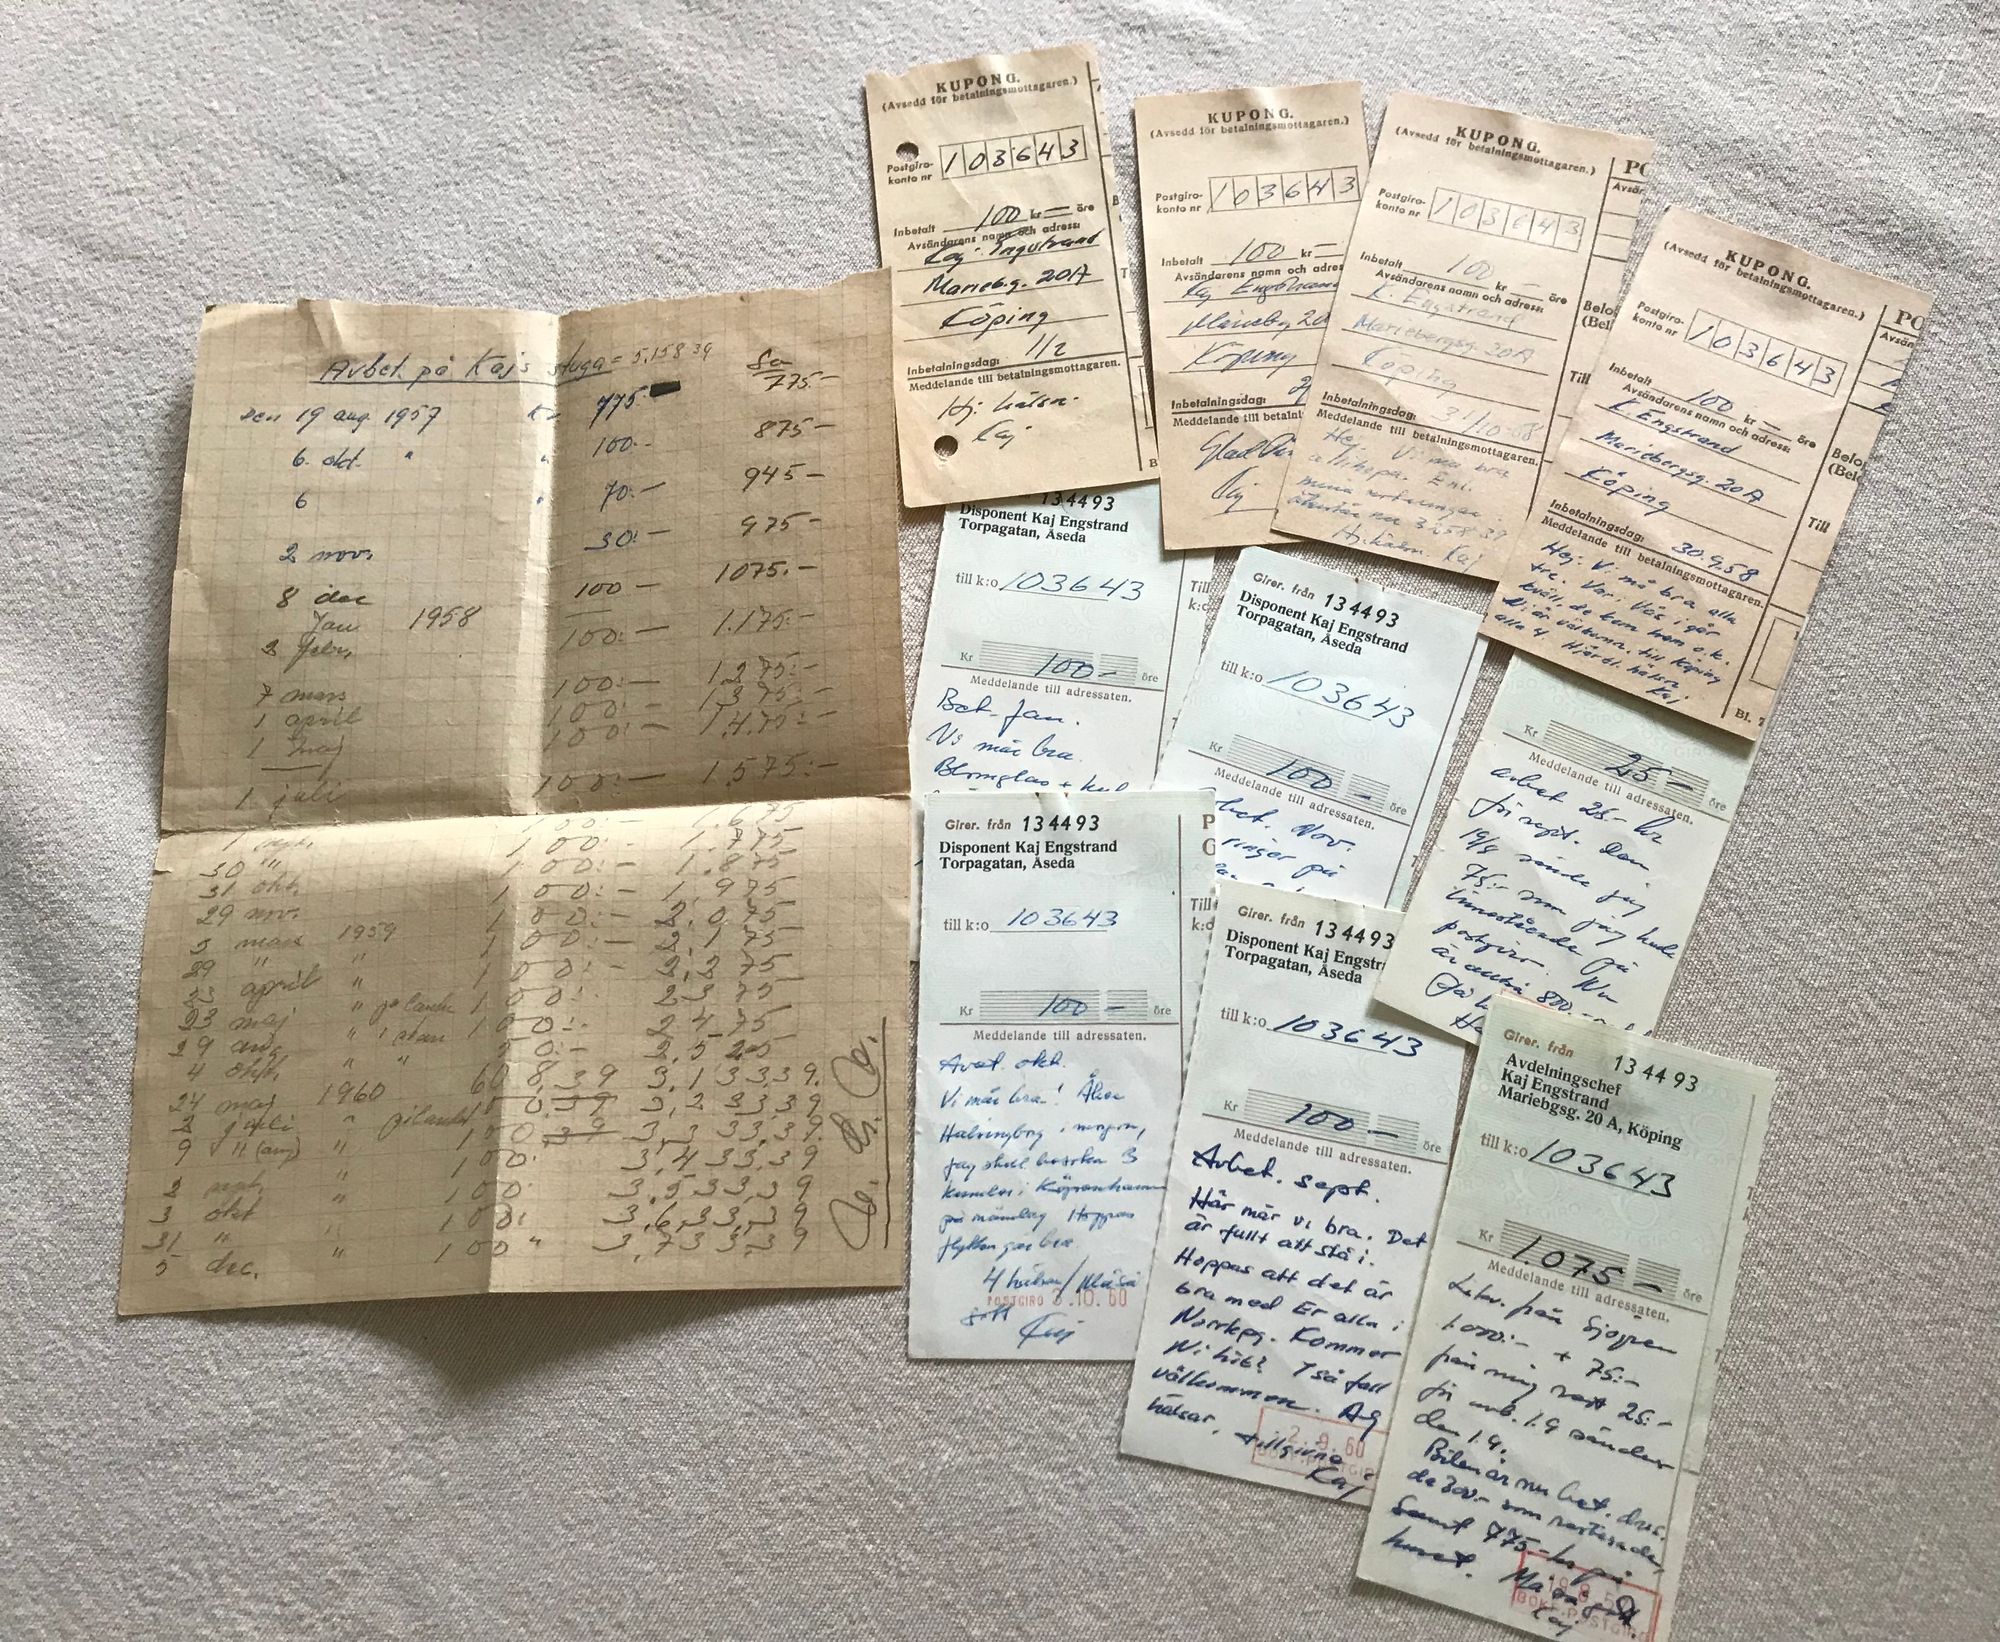 Arbet. på Kajs stuga = 5.158 39
Sa
den 19 aug. 1957 Kr 775:- 775:-
6. okt. " " 100:- 875-
6 " 70:- 945-
2 nov. 30:- 975-
8 dec 100- 1075:-
Jan 1958
2 febr. 100:- 1.175:-
7 mars 100:- 1.275:-
1 april 100:- 1.375:-
1 maj 100:- 1.475:-
1 juli 100:- 1.575:-
1 100:- 1.675
30 " 100:- 1.775
31 okt. 100:- 1.875
29 nov. 100:- 1.975
5 mars 1959 100:- 2.075
29 " " 100:- 2.175
april " 100:- 2.275
23 maj " på landet 100:- 2.375
29 aug " 100:- 2.475
4 okt. " " 50:- 2.525
24 maj 1960 608.39 3.133.39.
2 juli " på landet 100 3.233.39
9 " (aug) " 100 3.333.39
" 100: 3.433.39
okt " 100: 3.533.39
31 " " 100: 3.633.39
5 dec. " 100 " 3.733.39
KUPONG.
(Avsedd för betalningsmottagaren.)
Postgiro-
konto nr 103643
Inbetalt 100 kr — öre
Avsändarens namn och adress:
Kaj Engstrand
Mariebg. 20A
Köping
Inbetalningsdag: 1/2
Meddelande till betalningsmottagaren.
Hj. hälsn.
Kaj
KUPONG.
(Avsedd för betalningsmottagaren.)
Postgiro-
konto nr 103643
Inbetalt 100 kr —
Avsändarens namn och adres
Kaj Engstrand
Mariebg 20
Köping
Inbetalningsdag:
Meddelande till betalni
Glad
Kaj
KUPONG.
(Avsedd för betalningsmottagaren.)
Postgiro-
konto nr 103643
Inbetalt 100 kr — öre
Avsändarens namn och adress:
K. Engstrand
Mariebergsg. 20A
Köping
Inbetalningsdag: 31/10-58
Meddelande till betalningsmottagaren.
Hej. Vi mår bra
allihopa. Enl.
mina noteringar
återstår nu 3.658-39
Hj. hälsn. Kaj
PO
Avsän
Belo
(Bel
Till
KUPONG.
(Avsedd för betalningsmottagaren.)
Postgiro-
konto nr 103643
Inbetalt 100 kr — öre
Avsändarens namn och adress:
K. Engstrand
Mariebergsg. 20A
Köping
Inbetalningsdag: 30.9.58
Meddelande till betalningsmottagaren.
Hej. Vi må bra alla
tre. Var i Vås i går
kväll, de kom hem o.k.
Ni är välkomna till Köping
alla 4 Hjärtl. hälsn.
Kaj
PO
Avsän
Belo
(Bel
Till
Bl. 7
134493
Disponent Kaj Engstrand
Torpagatan, Åseda
till k:o 103643
Kr 100- öre
Meddelande till adressaten.
Bet. Jan.
Vi mår bra.
Till
k:o
Girer. från 134493
Disponent Kaj Engstrand
Torpagatan, Åseda
till k:o 103643
Kr 100 - öre
Meddelande till adressaten.
Nov.
ringer på
Kr 25- öre
Meddelande till adressaten.
arbet 25.- kr
för sept. Den
19/8 sände jag
75:- som jag hade
innestående på
postgiro. Nu
är 800.-
Girer. från 134493
Disponent Kaj Engstrand
Torpagatan, Åseda
till k:o 103643
Kr 100 - öre
Meddelande till adressaten.
Avbet. okt.
Vi mår bra! Åker
Halsingborg i morgon,
jag skall besöka 3
kunder i Köpenhamn
på måndag Hoppas
flytten går bra
4 hälsn/ Må så
gott
Kaj
POSTGIRO 3.10.60
P
G
Till
k:o
Girer. från 134493
Disponent Kaj Engstr
Torpagatan, Åseda
till k:o 103643
Kr 100 - öre
Meddelande till adressaten.
Avbet. sept.
Här mår vi bra. Det
är fullt att stå i.
Hoppas att det är
bra med Er alla i
Norrkpg. Kommer
Ni hit? I så fall
välkommen. Ag
hälsar, tillgivne
Kaj
2.9.60
Girer. från 134493
Avdelningschef
Kaj Engstrand
Mariebgsg. 20 A, Köping
till k:o 103643
Kr 1.075 - öre
Meddelande till adressaten.
Likv. från Sjögren
1.000:- + 75:-
från mig rest 25:-
för avb. 1.9 sänder
den 1.9.
Bilen är nu bet. dvs.
de 300.- som resterade,
Samt 775-kr på
huset. Må så gott
Kaj
19.8.5
BOKF. POSTGIRO